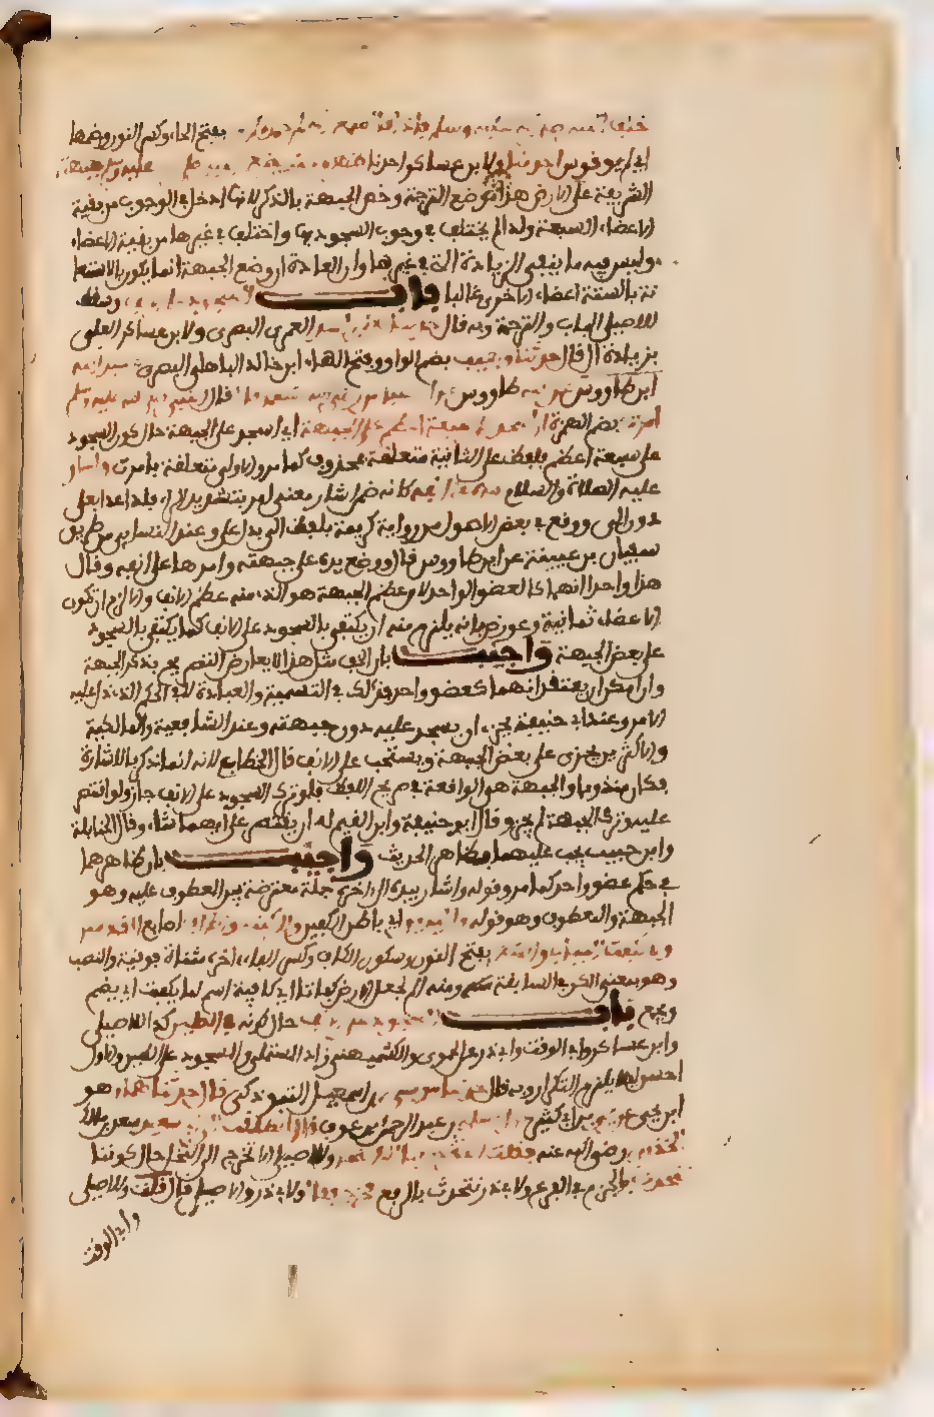 خلف النبي صلى الله عليه وسلم فاذا بفتح الحاء وكسر النون وضمها
اي لم يقوس احد منا ولابن عساكر احدنا ظهره حتى يضع النبي صلى عليه وسلم جبهته
الشريفة على الارض هذا موضع الترجمة وخص الجبهة بالذكر لانها ادخل في الوجوب من بقية
الاعضاء السبعة ولذا لم يختلف في وجوب السجود بها واختلف في غيرها من بقية الاعضاء
وليس فيه ما ينفي الزيادة التي في غيرها وان العادة ان وضع الجبهة انما يكون بالاستعا
نة بالستة اعضاء الاخرى غالبا باب السجود على الانف وسقط
للاصيلي الباب والترجمة وبه قال حدثنا معلى بن اسد العمي البصري ولابن عساكر المعلى
بزيادة ال قال حدثنا وهيب بضم الواو وفتح الهاء ابن خالد الباهلي البصري عن عبد الله
ابن طاووس عن ابيه طاووس عن ابن عباس رضي الله عنهما قال قال النبي صلى الله عليه وسلم
امرت بضم الهمزة ان اسجد على سبعة اعظم على الجبهة اي اسجد على الجبهة حال كون السجود
على سبعة اعظم فلفظ على الثانية متعلقة بمحذوف كما مر والاولى متعلقة بامرت واشار
عليه الصلاة والسلام بيده على انفه كانه ضمن اشار معنى امر بتشديد الراء فلذا عداه بعلى
دون الى ووقع في بعض الاصول من رواية كريمة بلفظ الى بدل على وعند النسايي من طريق
سفيان بن عيينة عن ابن طاووس قال ووضع يده على جبهته وامرها على انفه وقال
هذا واحد اي انهما كالعضو الواحد لان عظم الجبهة هو الذي منه عظم الانف والا لزم ان تكون
الاعضاء ثمانية وعورض بانه يلزم منه ان يكتفى بالسجود على الانف كما يكتفى بالسجود
على بعض الجبهة واجيب بان الحق ان مثل هذا لا يعارض التصريح بذكر الجبهة
وان امكن ان يعتقد انهما كعضو واحد فذلك في التسمية والعبارة لا في الحكم الذي دل عليه
الامر وعند ابي حنيفة يجزي ان يسجد عليه دون جبهته وعند الشافعية والمالكية
والاكثرين يجزى على بعض الجبهة ويستحب على الانف قال الخطابي لانه انما ذكر بالاشارة
فكان مندوبا والجبهة هي الواقعة في صريح اللفظ فلو ترك السجود على الانف جاز ولو اقتصر
عليه وترك الجبهة لم يجز وقال ابو حنيفة وابن القيم له ان يقتصر على ايهما شاء وقال الحنابلة
وابن حبيب يجب عليهما لظاهر الحديث واجيب بان ظاهرهما
في حكم عضو واحد كما مر وقوله واشار بيده الى اخره جملة معترضة بين المعطوف عليه وهو
الجبهة والمعطوف وهو قوله واليدين اي باطن الكفين والركبتين واطراف اصابع القدمين
ولا نكفت الثياب والشعر بفتح النون وسكون الكاف وكسر الفاء اخره مثناة فوقية والنصب
وهو بمعنى الكف في السابقة ومنه الم نجعل الارض كفاتا اي كافتة اسم لما يكفت اي يضم
ويجمع باب السجود على الانف حال كونه في الطين كذا للاصيلي
وابن عساكر وابي الوقت وابي ذر عن الحموي والكشميهني زاد المستملي والسجود على الطين والاول
احسن ليلا يلزم التكرار وبه قال حدثنا موسى بن اسمعيل التبوذكي قال حدثنا همام هو
ابن يحيى عن يحيى بن ابي كثير عن ابي سلمة بن عبد الرحمن بن عوف قال انطلقت الى ابي سعيد سعد بن مالك
الخدري رضي الله عنه فقلت الا تخرج بنا الى النخل وللاصيلي الا تخرج الى النخل حال كوننا
نتحدث بالجزم في الفرع ولابي ذر نتحدث بالرفع فخرج فقال ولابي ذر والاصيلي قال قلت وللاصيلي
وابي الوقت